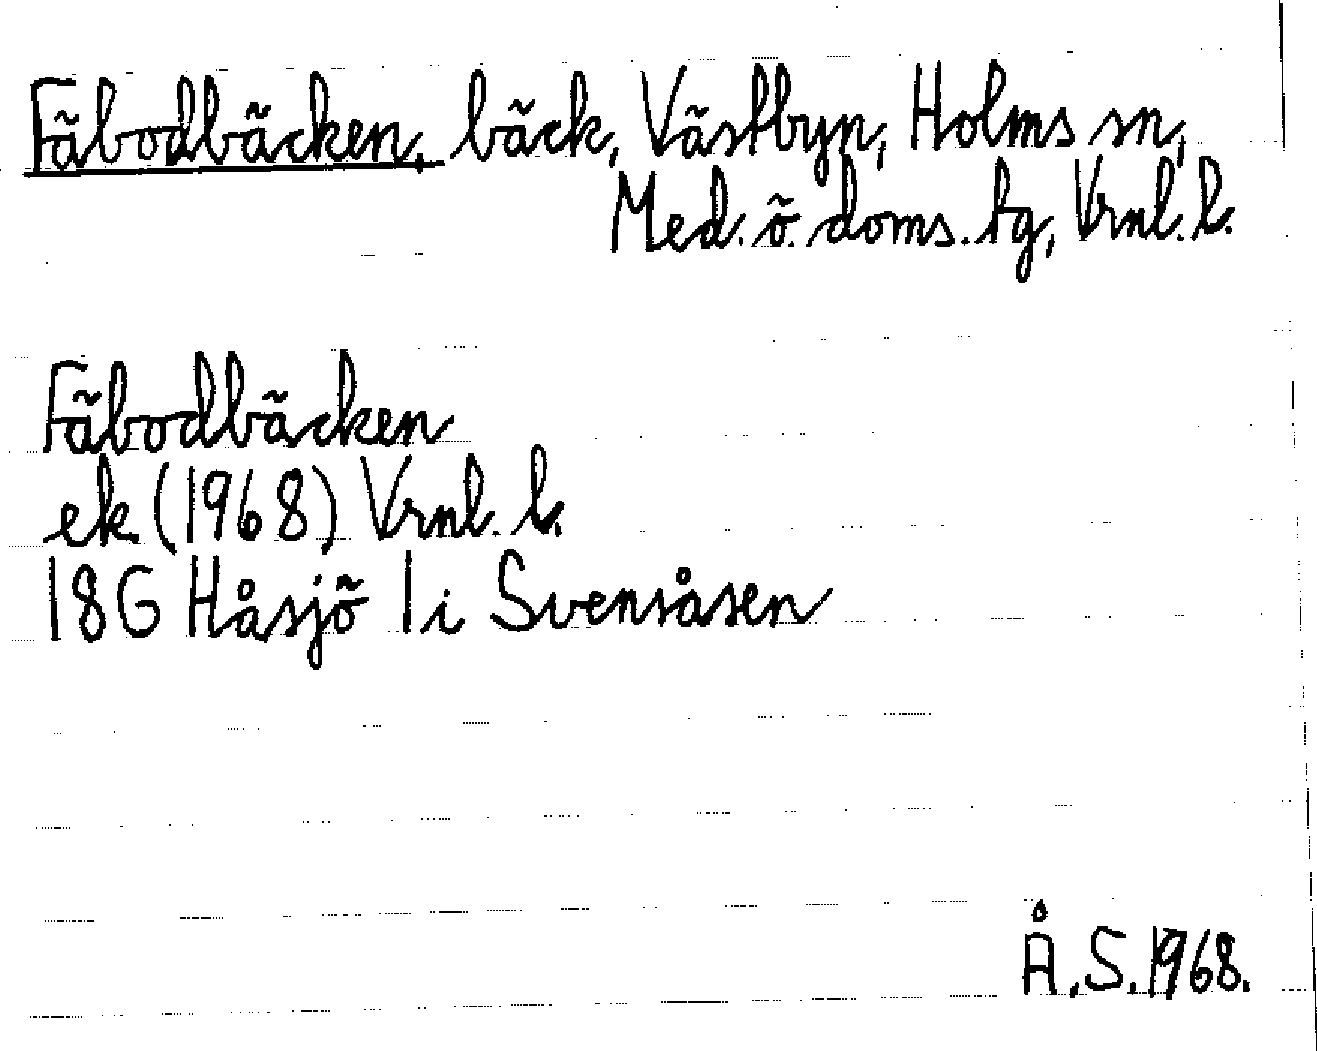 Fäbodbäcken, bäck, Västbyn, Holms sn,
Med. ö. doms. tg, Vrnl. l.
Fäbodbäcken
ek. (1968) Vrnl. l.
18G Håsjö 1 i Svensåsen
Å.S. 1968.